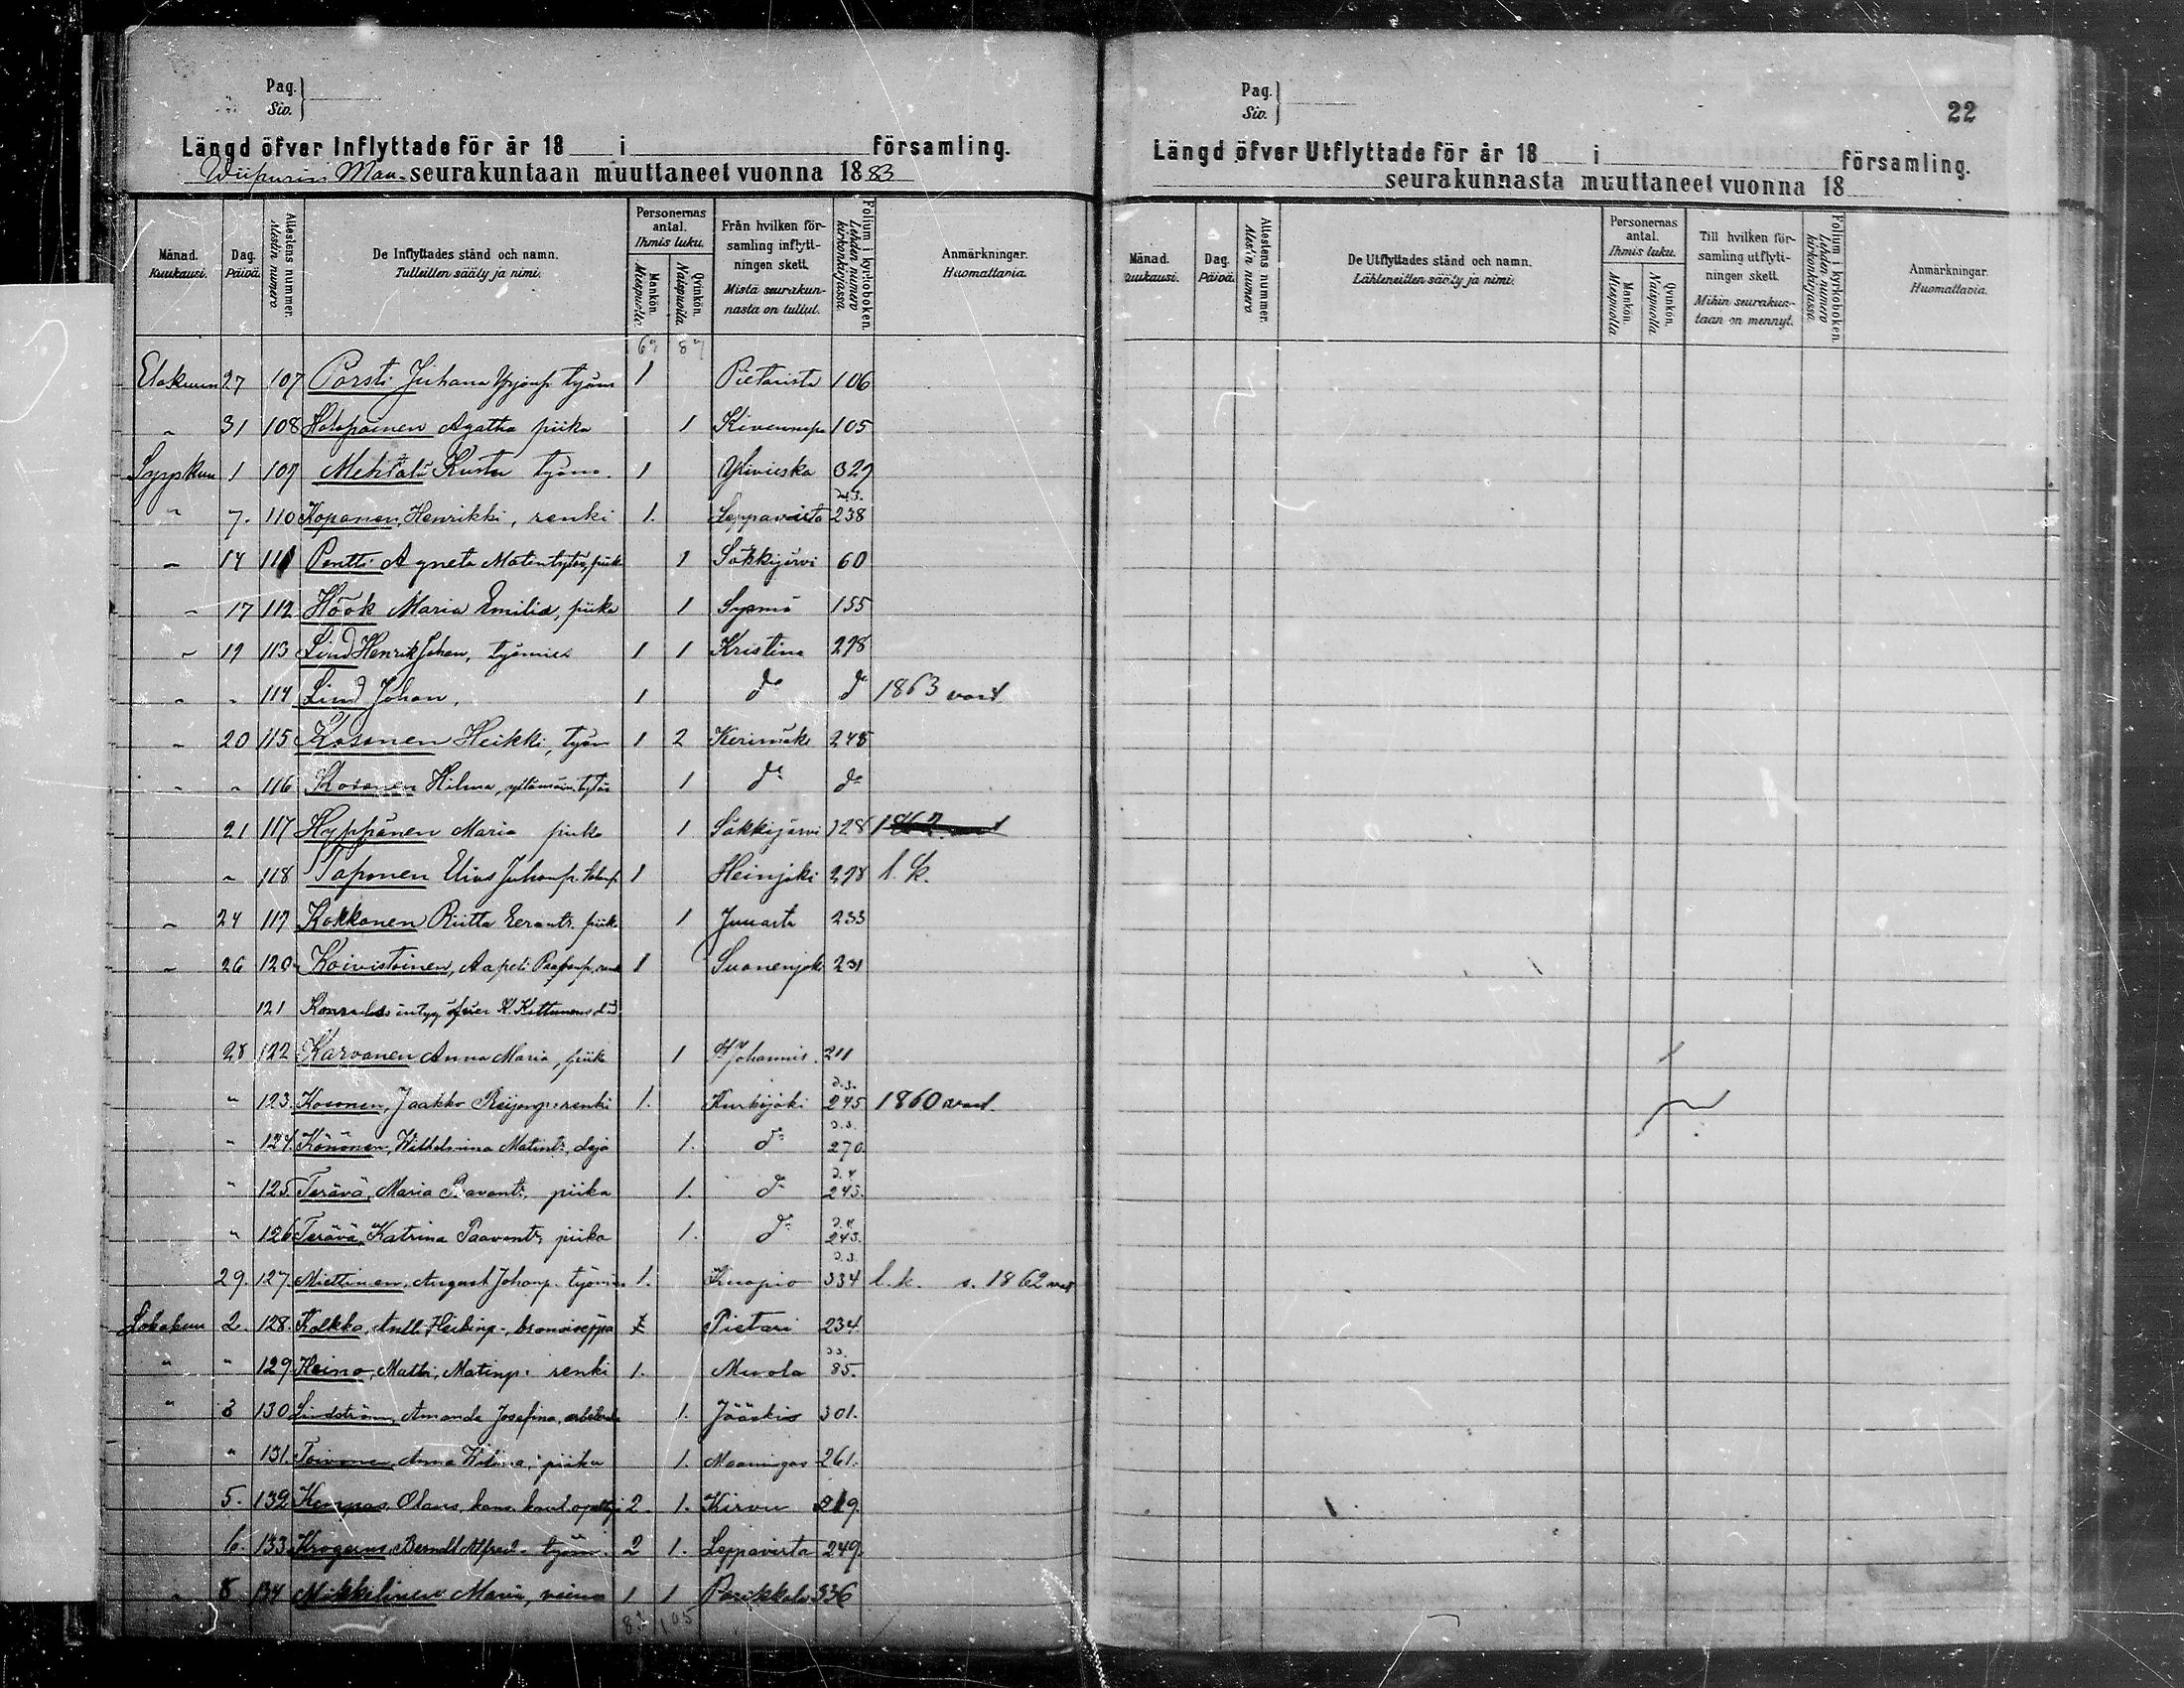 Pag.
Siv.
Längd öfver Inflyttade för år 18 i församling.
Wiipurin Maa- seurakuntaan muuttaneet vuonna 1883
Månad. Kuukausi.
Dag. Päivä.
Attestens nummer. Atestin numero
De Inflyttades stånd och namn. Tulleitten sääty ja nimi.
Personernas antal. Ihmis luku.
Mankön. Miespuolta.
Qvinkön. Naispuolta.
Från hvilken församling inflyttningen skett. Mistä seurakunnasta on tullut.
Folium i kyrkoboken. Lehden numero kirkonkirjassa.
Anmärkningar. Huomattavia.
67 87
Elokuun 27 107 Porsti Juhana Yrjönp. työm 1 Pietarista 106
" 31 108 Holopainen Agatha piika 1 Kivennapa 105
Syyskuu 1 109 Mehtälä Kusta työm. 1 Ylivieska 329
" 7. 110 Koponen, Henrikki, renki 1. Leppävirta 238
" 14 111 Pentti Agneta Matintytär, piika 1 Säkkijärvi 60
" 17 112 Höök Maria Emilia, piika 1 Sysmä 155
" 19 113 Lind Henrik Johan, työmies 1 1 Kristina 298
" " 114 Lind Johan, 1 do do 1863 vard.
" 20 115 Kosonen Heikki, työm 1 2 Kerimäki 248
" " 116 Kosonen Hilma, tytär 1 do do
21 117 Hyppänen Maria piika 1 Säkkijärvi 328 1862
" 118 Taponen Elias Juhanp. 1 Heinjoki 298 l. k.
" 24 119 Kokkonen Riitta Eerontr. piika 1 Juuasta 233
" 26 120 Koivistoinen, Aapeli 1 Suonenjoki 231
121 intyg öfver K. Kettunens
28 122 Karvonen Anna Maria, piika 1 St Johannis 211
" 123. Kosonen, Jaakko renki 1. Kurkijoki 245 1860 vard.
" 124. Könönen, Wilhelmina Matint:, 1. do 270.
" 125 Terävä, Maria Paavont:, piika 1. do 243.
" 126 Terävä, Katrina Paavont:, piika 1. do 243.
29. 127. Miettinen, August Johanp. työmies 1. Kuopio 334 l. k. s. 1862
Lokakuu 2. 128. Kolkka, Antti Heikinp., 1 Pietari 234.
" " 129 Heino, Matti, Matinp: renki 1. Muola 85.
" 3 130 Lindström, Amanda Josefina, 1. Jääskis 301.
" 131. Toivonen, Anna Wilma, piika 1. Maaninga 261.
5. 132 Olaus, kans. koul. opettaja 2. 1. Kirvu 219.
6. 133 Krogerus, Berndt Alfred - työm. 2 1. Leppävirta 249.
" 8 134 Mikkelinen Maria, 1 1 Parikkala 336
82 105
22
Pag.
Siv.
Längd öfver Utflyttade för år 18 i församling.
seurakunnasta muuttaneet vuonna 18
Månad. Kuukausi.
Dag. Päivä.
Attestens nummer. Atestin numero
De Utflyttades stånd och namn. Lähteneitten sääty ja nimi.
Personernas antal. Ihmis luku.
Mankön. Miespuolta
Qvinkön. Naispuolta.
Till hvilken församling utflyttningen skett. Mihin seurakuntaan on mennyt.
Folium i kyrkoboken. Lehden numero kirkonkirjassa.
Anmärkningar. Huomattavia.